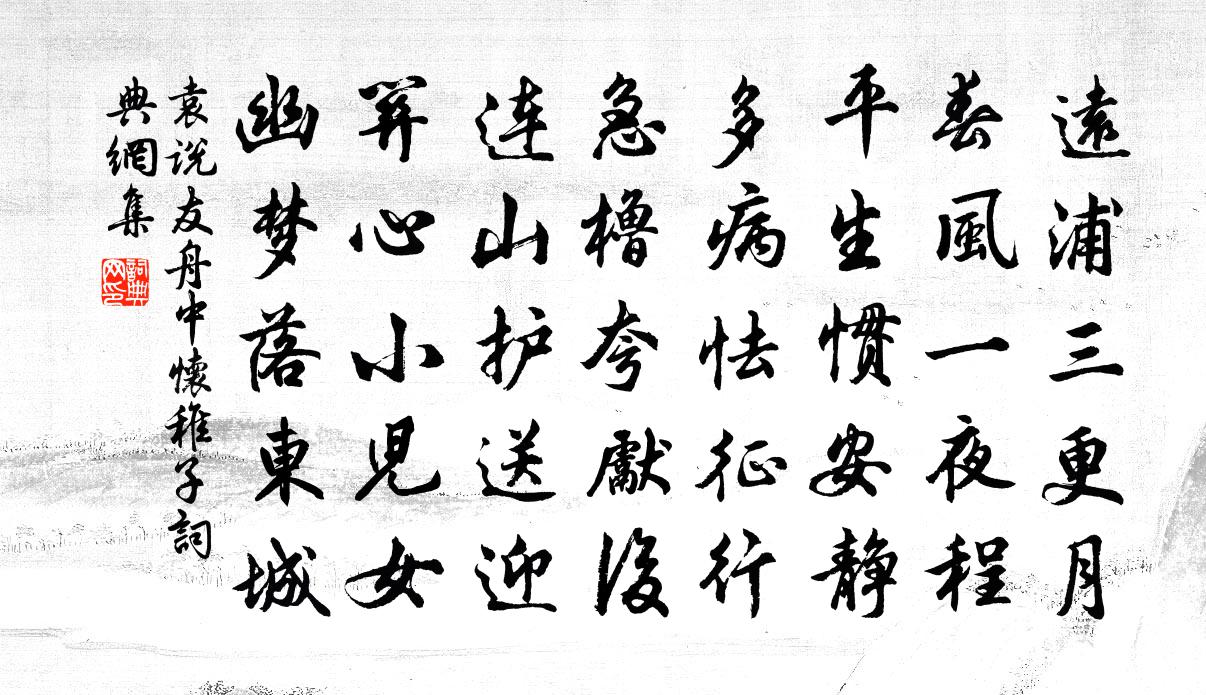 遠浦三更月
春風一夜程
平生慣安静
多病怯征行
急櫓夸獻後
連山护送迎
关心小兒女
幽梦落東城
袁説友舟中懷稚子詞
典網集
詞典
网印